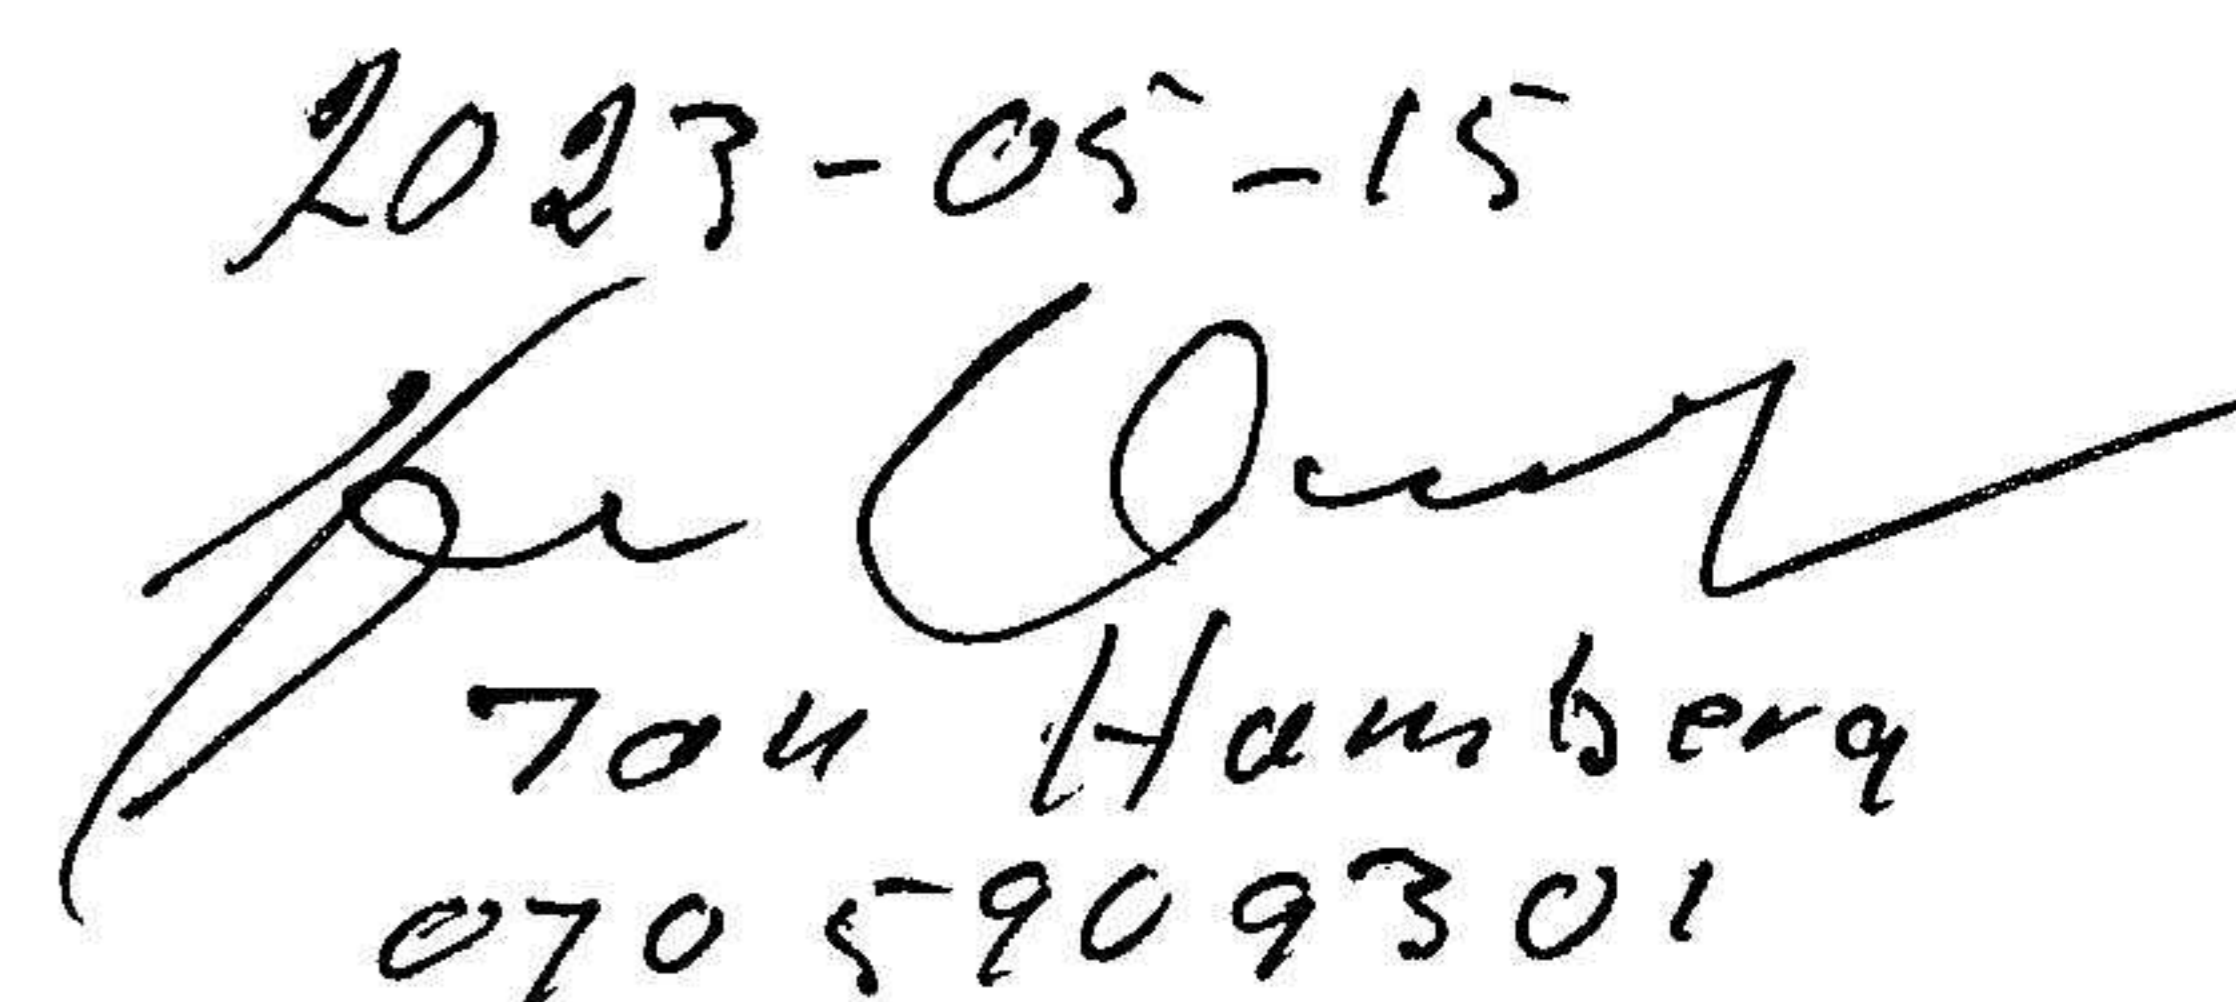 2023-05-15
Jan Hamberg
070 5909301